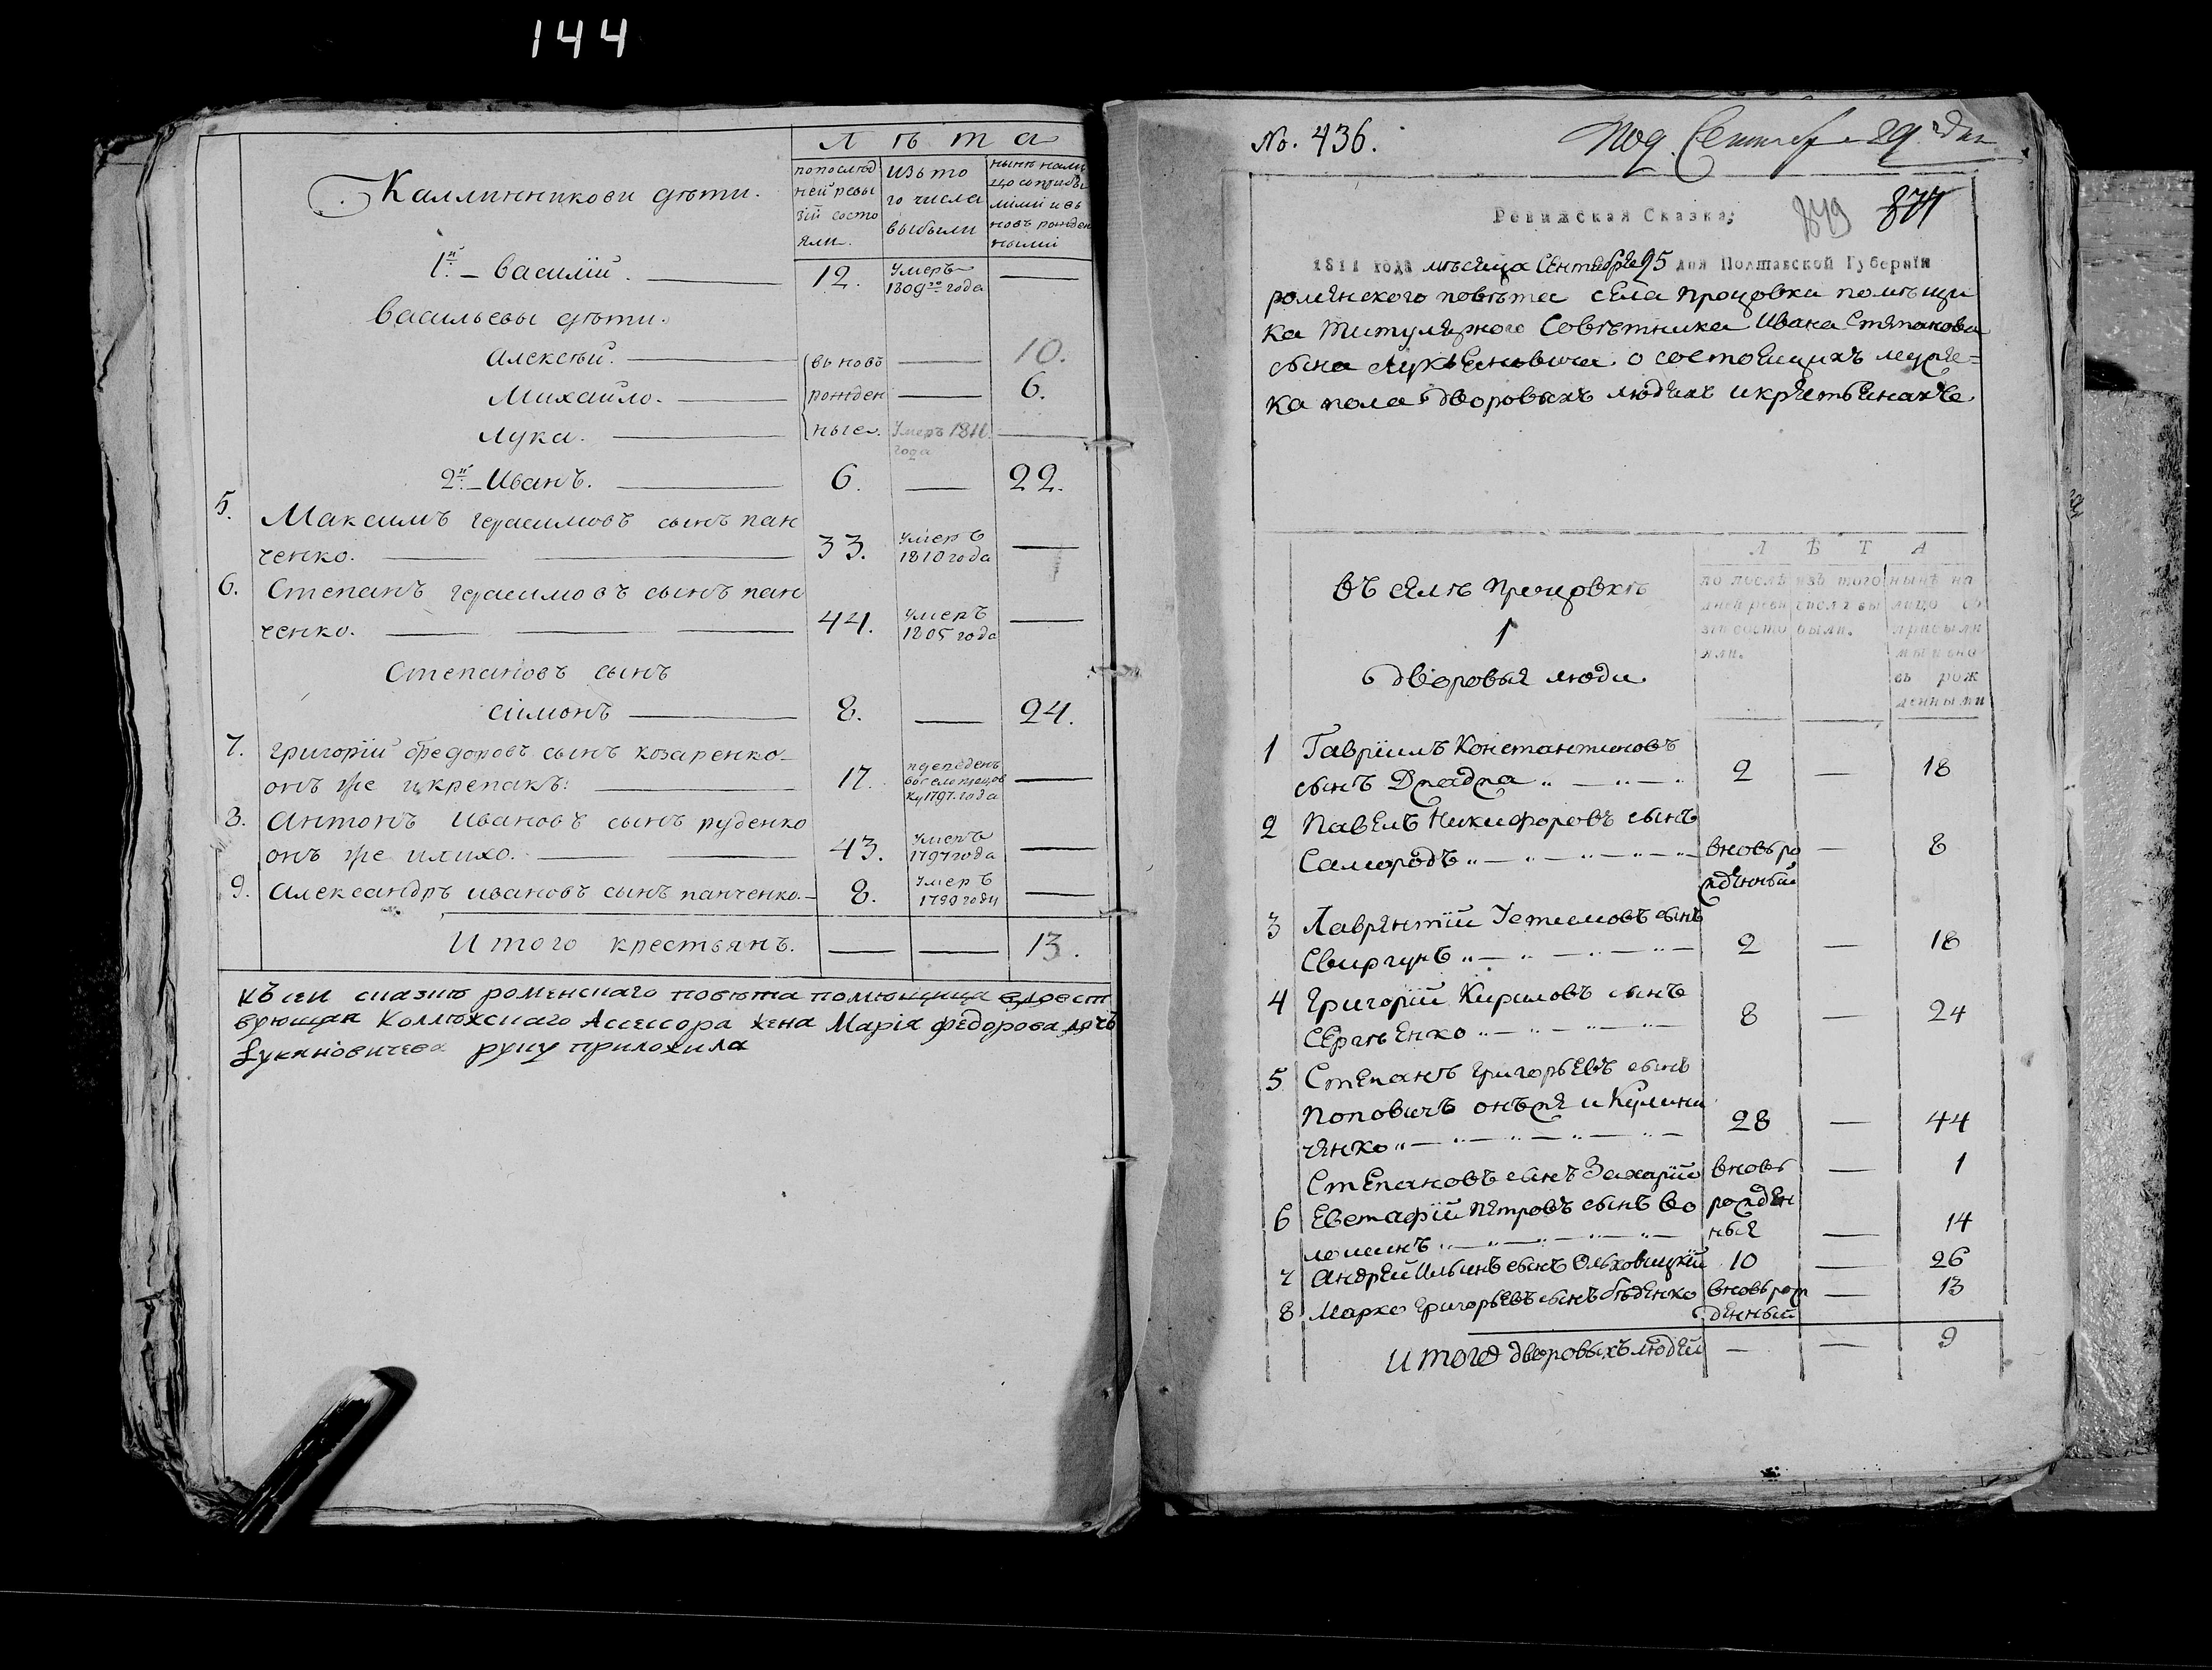 144
Л ѣ т а
Каллиникови дѣти.
попослѣд
ней ревы
зіи состо
яли.
изъ то
го числа
выбыли
нынѣ нали
1й – Василій. 12. Умеръ
1809го года
Васильевы дѣти.
Алексѣй. въновь 10.
Михайло. рожден 6.
Лука. ные. Умеръ 1811
года
2й – Иванъ. 6. 22.
5. Максимъ Герасимовъ сынъ пан
ченко. 33. Умеръ
1810 года
6. Степанъ Герасимовъ сынъ пан
ченко. 44. Умеръ
1805 года
Степановъ сынъ
Сімонъ 8. 24.
7. Григорій Федоровъ сынъ козаренко
онъ же и крепакъ: 17.
1797 года
8. Антонъ Ивановъ сынъ руденко
онъ же илихо. 43. Умеръ
1797 года
9. Александръ Ивановъ сынъ панченко. 8. Умеръ
1799 году
Итого крестьянъ. 13.
къ сей сказке роменскаго повѣта помющица
Коллюжскаго Ассесора жена Марія федорова дочь
Лукяновичева руку приложила
No. 436.
Под. Сентебр 29го дня
849 877
Ревижская Сказка;
1811 года мѣсяца Сентебря 25 дня Полтавской Губерніи
роменского повѣта села Процовки помѣщи
ка титулярного Совѣтника Ивана Степанова
сына Лукьяновича о состоящихъ муже=
ка пола дворовыхъ людехъ и крестьенахъ.
Л Ѣ Т А
по послѣ
дней реви
зіи состо
яли.
изъ того
числа вы
были.
нынѣ на
лицо съ
прибылы
ми и вно
въ рож
денными
въ селѣ Процовкѣ
1
дворовыя люди.
1 Гавріилъ Константиновъ
сынъ Драдра 2 — 18
2 Павелъ Никифоровъ сынъ
Самородъ вновь ро — 8
жденный
3 Лаврентій Устимовъ сынъ
Свиргунъ 2 — 18
4 Григорій Кириловъ сынъ
Сергѣенко 8 — 24
5 Степанъ Григорьевъ сынъ
Поповичъ онъ же и Кулини
ченко 28 — 44
Степановъ сынъ Захарій вновь — 1
6 Евстафій Петровъ сынъ Во рожден
лошинъ ныя — 14
7 Андрей Ильинъ сынъ Ольховицкій 10 — 26
8 Марко Григорьевъ сынъ бѣденко вновь рож — 13
денный
Итого дворовыхъ людей — — 9